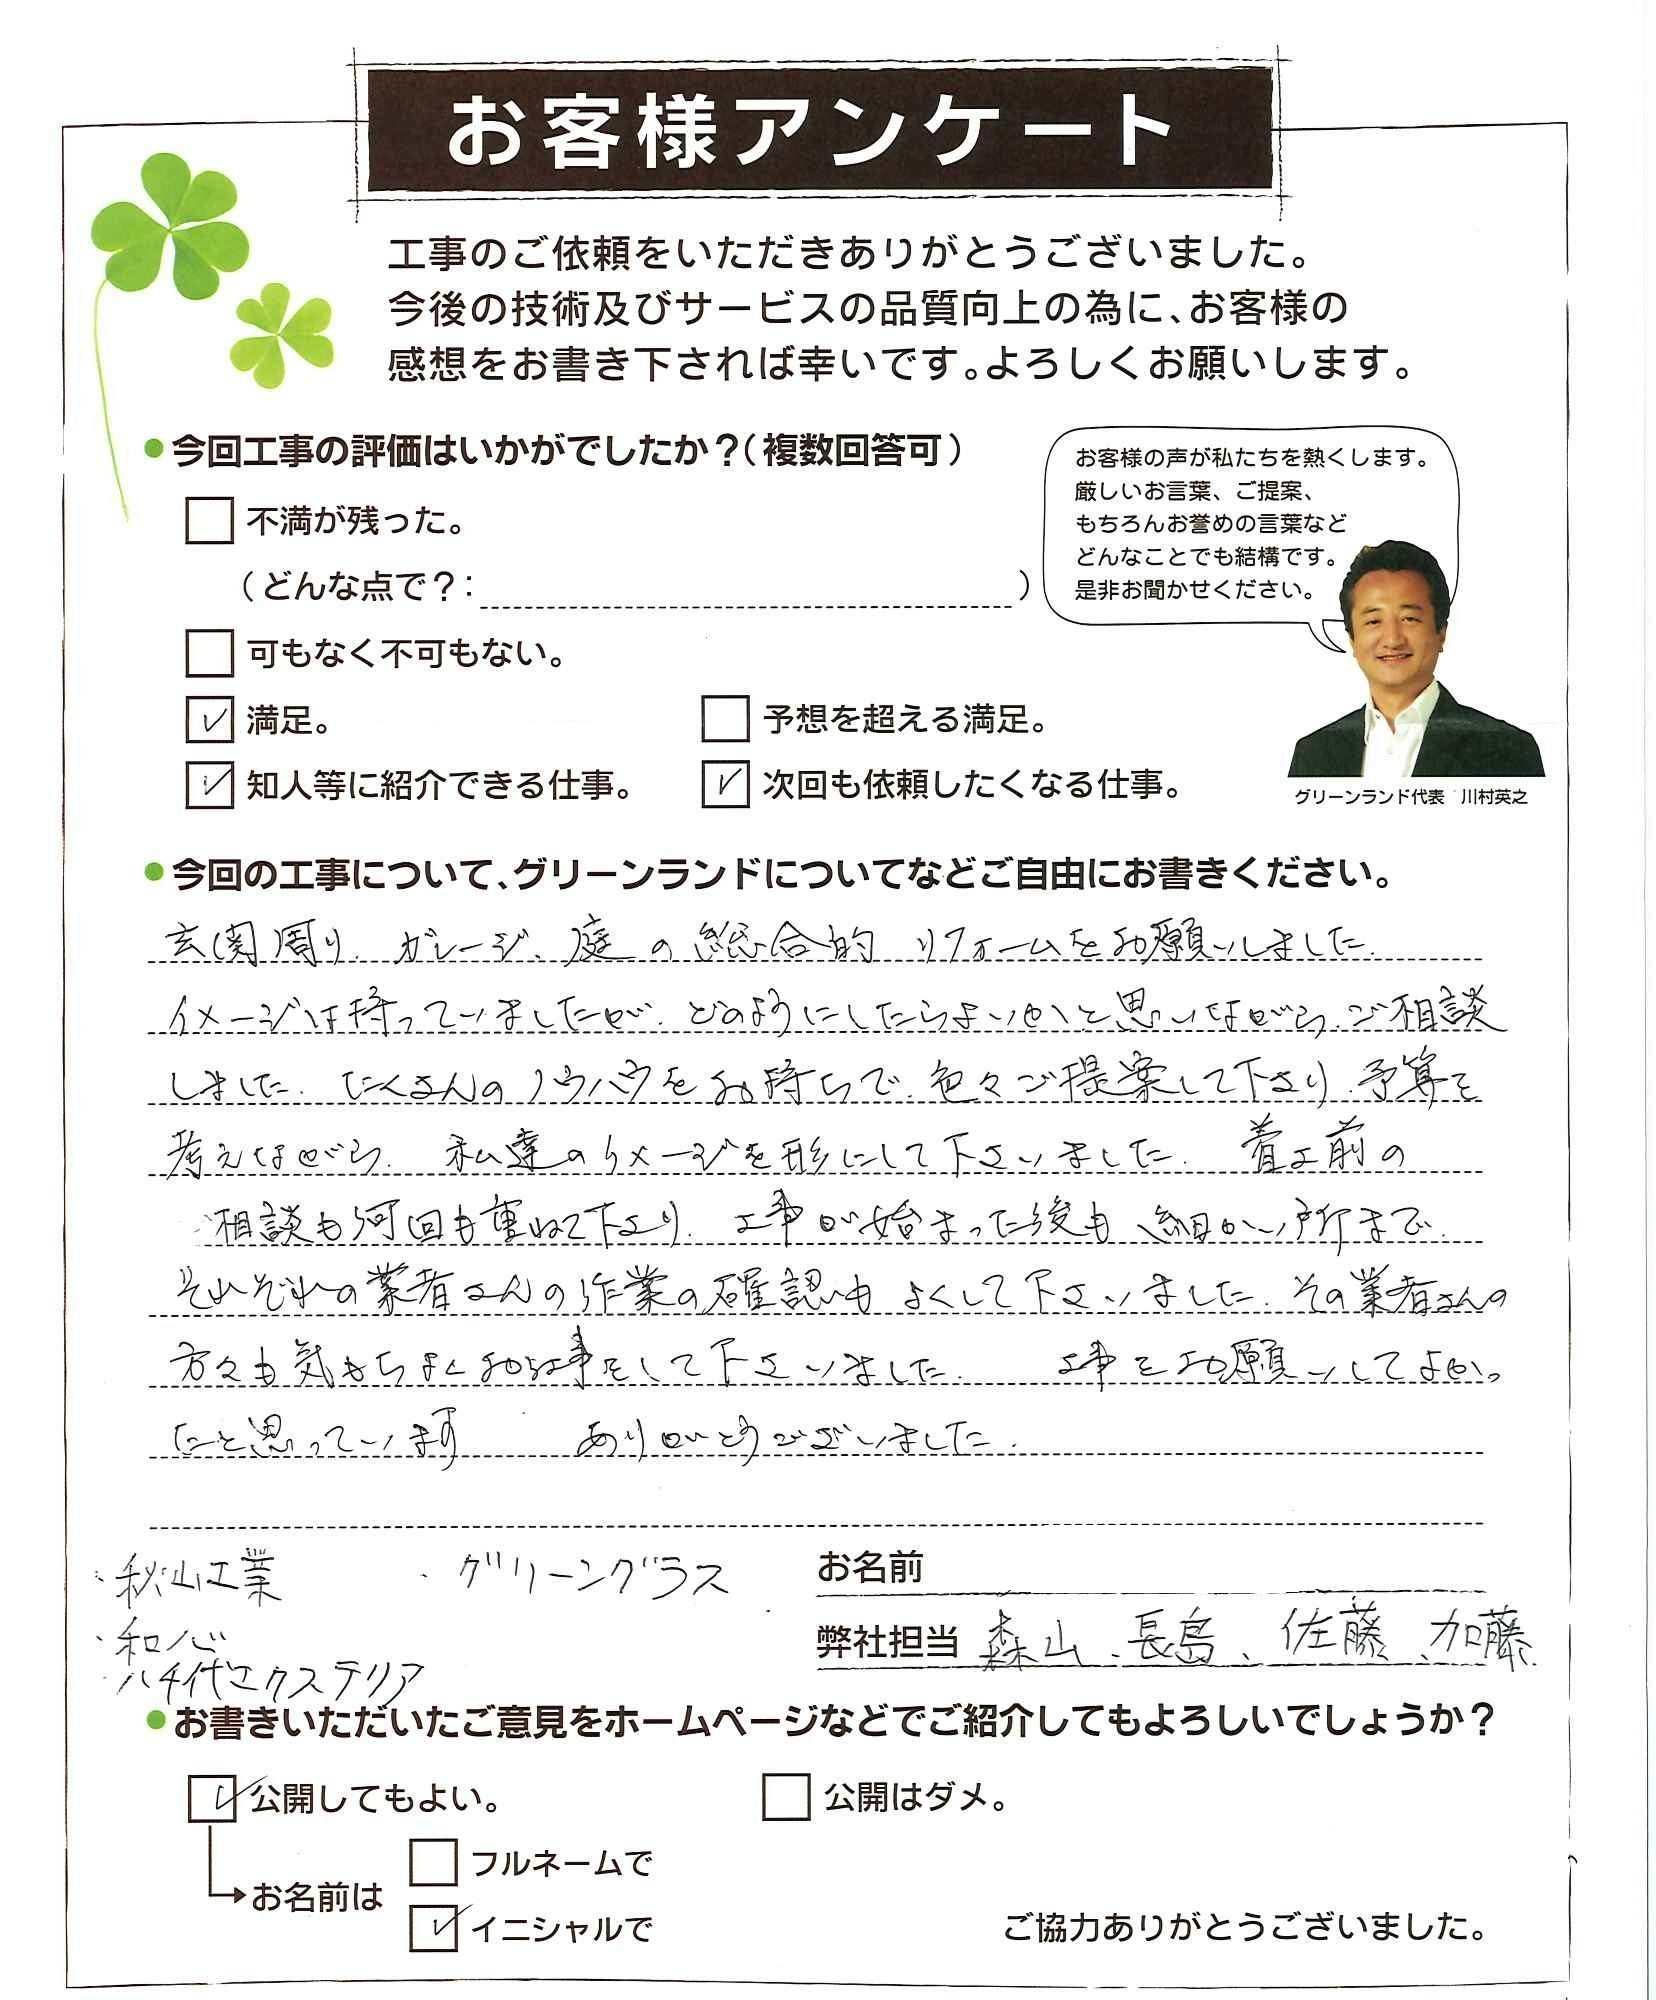 お客様アンケート
工事のご依頼をいただきありがとうございました。
今後の技術及びサービスの品質向上の為に、お客様の
感想をお書き下されば幸いです。よろしくお願いします。
●今回工事の評価はいかがでしたか？（複数回答可）
お客様の声が私たちを熱くします。
厳しいお言葉、ご提案、
もちろんお誉めの言葉など
どんなことでも結構です。
是非お聞かせください。
不満が残った。
（どんな点で？：　　　　）
可もなく不可もない。
満足。
予想を超える満足。
知人等に紹介できる仕事。
次回も依頼したくなる仕事。
グリーンランド代表　川村英之
●今回の工事について、グリーンランドについてなどご自由にお書きください。
玄関周り、ガレージ、庭の総合的リフォームをお願いしました。
イメージは持っていましたが、どのようにしたらよいかと思いながら、ご相談
しました。たくさんのノウハウをお持ちで、色々ご提案して下さり、予算を
考えながら、私達のイメージを形にして下さいました。着工前の
ご相談も何回も重ねて下さり、工事が始まった後も、細かい所まで、
それぞれの業者さんの作業の確認もよくして下さいました。その業者さんの
方々も気もちよくお仕事をして下さいました。工事をお願いしてよかっ
たと思っています　ありがとうございました。
・秋山工業　・グリーングラス
お名前
・和心
弊社担当　森山、長島、佐藤、加藤
・八千代エクステリア
●お書きいただいたご意見をホームページなどでご紹介してもよろしいでしょうか？
公開してもよい。
公開はダメ。
フルネームで
お名前は
イニシャルで
ご協力ありがとうございました。